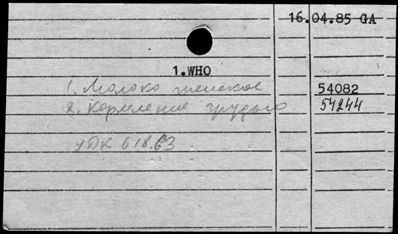 16.04.85 GA
1.WHO
1. Молоко женское 54082
2. Кормление грудью 54244
УДК 618.63